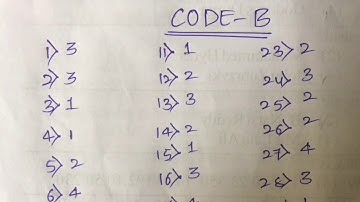 CODE-B
1> 3
2> 3
3> 1
4> 1
5> 2
6> 4
11> 1
12> 2
13> 3
14> 2
15> 1
16> 3
23> 2
24> 3
25> 2
26> 2
27> 4
28> 3